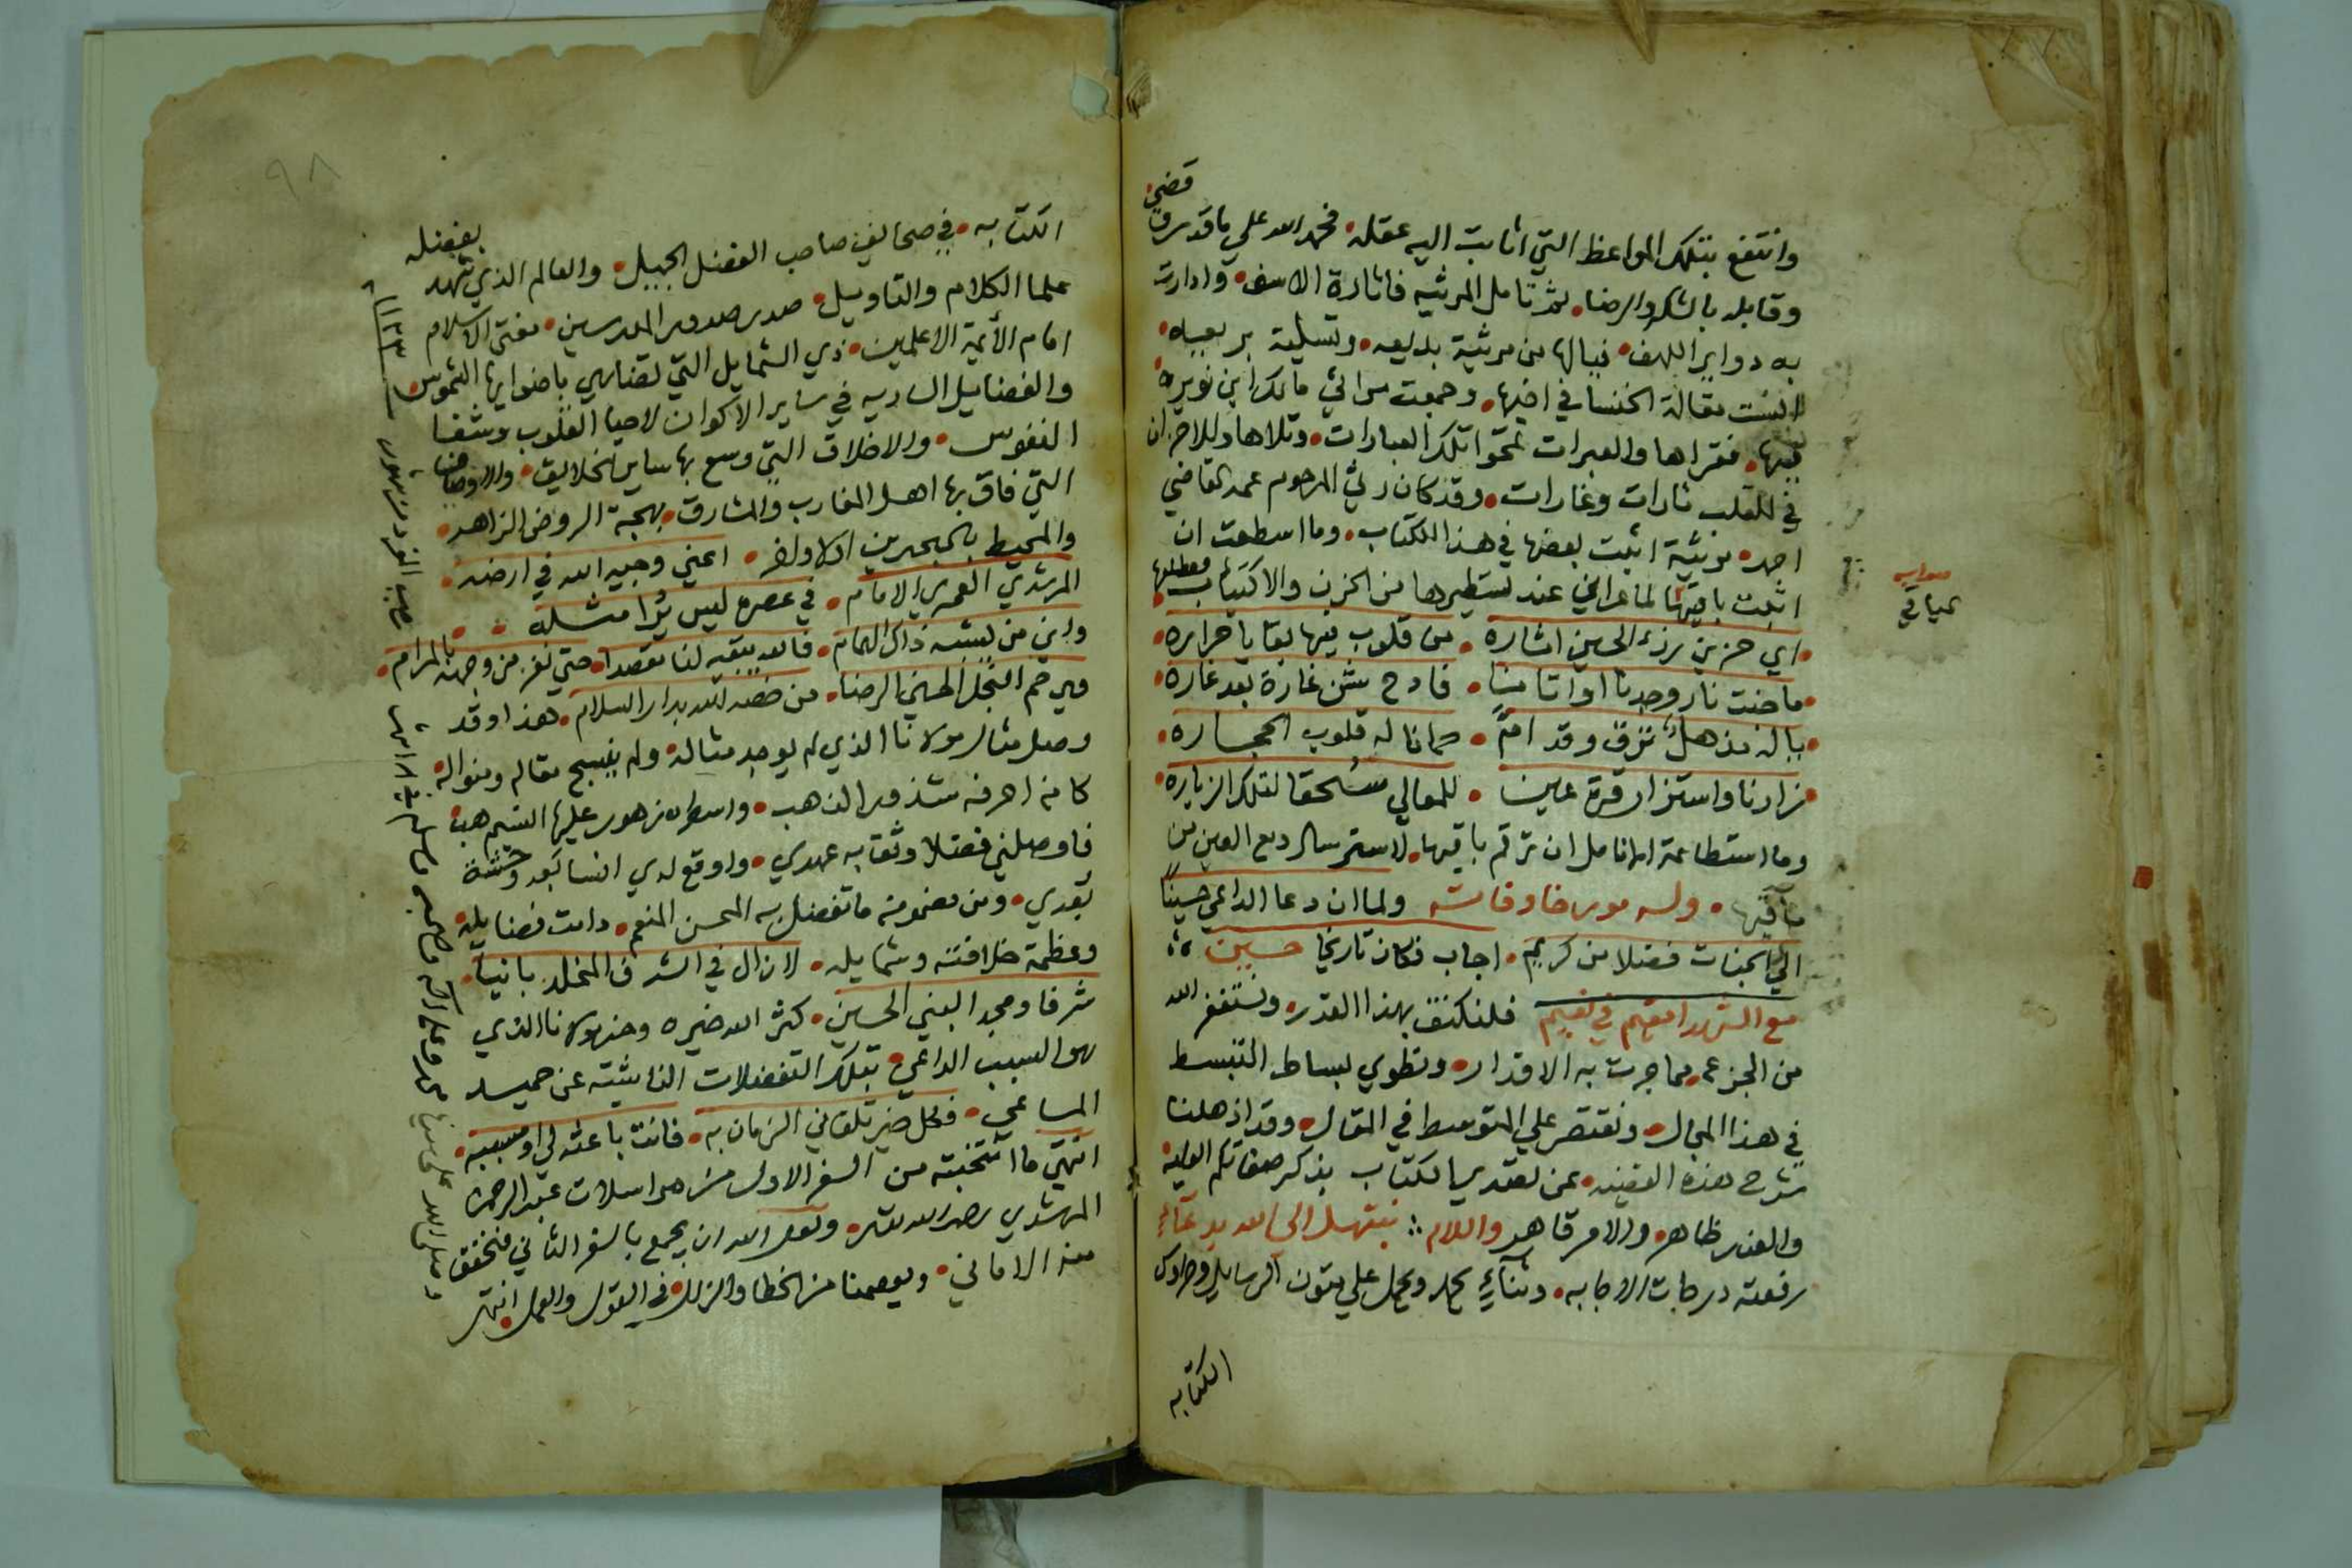 وانتفع بتلك المواعظ التي اثابت اليه عقله فحمد الله علي ما قدر وقضي
وقابله بالشكر والرضا ثم تامل المرثيه فاثارة الاسف وادارت
به دواير اللهف فيالها من مرثية بديعه وتسلية بر بعيه
انست مقالة الخنسا في اخيها وجمعت مراثي مالك ابن نويره
فيها فقراها والعبرات تمحوا تلك العبارات وتلاها وللاحزان
في القلب ثارات وغارات وقد كان رثي المرحوم عمه القاضي
احمد مرثية اثبت بعضها في هذا الكتاب وما اسطعت ان
اثبت باقيتها لما عراني عند تسطيرها من الحزن والاكتياب
صوابه
اي حزن رزء الحسين اثاره من قلوب فيها بقايا حراره
ما خبت نار وجدنا او اتانا فادح يشن غارة بعد غارة
ياله مذهل وقد ام حمانا له قلوب الحجاره
زارنا واستزار قرة عين للمعالي مستحقا لتلك الزياره
وما استطاعة الانامل ان ترقم باقيها لاسترسال دمع العين من
ماقيها وله مورخا وفاته ولما ان دعا الداعي حسينا
الي الجنات فضلا من كريم اجاب فكان تاريخا حسين
مع الشهدا معهم في نعيم فلنكتف بهذا القدر ونستغفر الله
من الجزع مما جرت به الاقدار ونطوي بساط التبسط
في هذا المجال ونقتصر علي المتوسط في المقال وقد اذهلنا
شرح هذه القضيه عن تصدير الكتاب بذكر صفاتكم العليه
والعذر ظاهر والامر قاهر والسلام نبتهل الى الله بدعآء
رفعته درجات الاجابه وثنآء يحمد ويحمل علي متون الرسايل وصدور
الكتابه
٩٨
الكتابه في صحايف صاحب الفضل الجميل والعالم الذي شهد بفضله
علما الكلام والتاويل صدر صدور المدرسين مفتي الاسلام
امام الأئمة الاعلمين ذي الشمايل التي تضاهي باضوايها الشموس
والفضايل الساريه في ساير الاكوان لاحيا القلوب وشفا
النفوس والاخلاق التي وسع بها ساير الخلايق والاوصاف
التي فاق بها اهل المغارب والمشارق بهجة الروض الزاهر
والمحيط اعني وجيه الله في ارضه
المرشدي العمري الامام في عصره ليس يرا مثله
وابن من يشبه ذاك الهمام فالله يبقيه لنا مقصدا حتي نفز من وجهه بالمرام
ويرحم النجل الحسين الرضا من خصه الله بدار السلام هذا وقد
وصل مثال مولانا الذي لم يوجد مثاله ولم ينسج مقاله ومنواله
كان احرفه شذور الذهب واسطره زهور عليها النسيم هب
فاوصلني فضلا وثقابه عهدي واوقع لدي انسا بعد وحشة
بعدي ومن مضمونه ما تفضل به المحسن المنعم دامت فضايله
وعظمة خلافته وشمايله لازال في الشرف المخلد بانيا
شرفا ومجدا لبني الحسين كثر الله خيره وحذ مولانا الذي
هو السبب الداعي بتلك التفضلات الناشيته عن حميد
المساعي فكل خير تلقاني الزمان به فانت باعثه لي او مسببه
انتهي ما انتخبته من السفر الاول من مراسلات عبد الرحمن
المرشدي رحمه الله ولعل الله ان يجمع بالسفر الثاني فنحقق
منه الاماني ويعصمنا من الخطا والزلل في القول والعمل انتهى